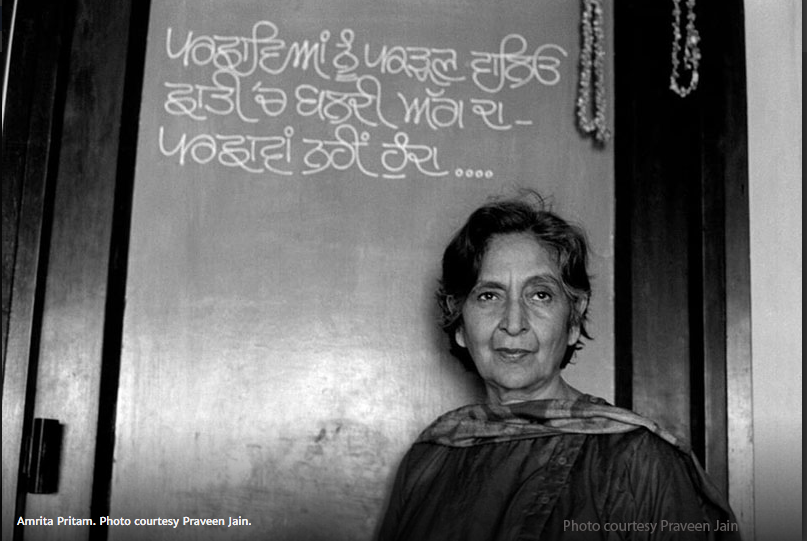 ਪਰਛਾਵਿਆਂ ਨੂੰ ਪਕੜਣ ਵਾਲਿਓ
ਛਾਤੀ 'ਚ ਬਲਦੀ ਅੱਗ ਦਾ -
ਪਰਛਾਵਾਂ ਨਹੀਂ ਹੁੰਦਾ ....
Amrita Pritam. Photo courtesy Praveen Jain.
Photo courtesy Praveen Jain